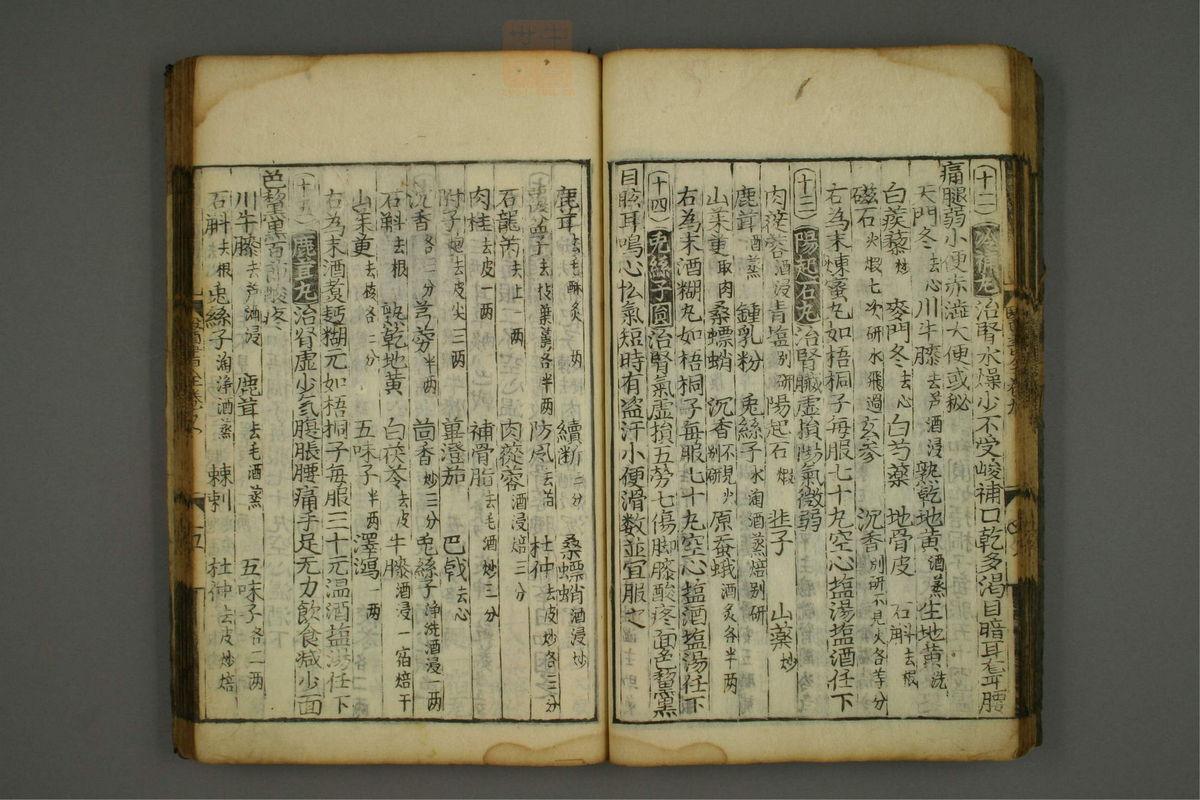 (十二)冷補丸治腎水燥少不受峻補口乾多渴目暗耳聾腰
痛腿弱小便赤澁大便或秘
天門冬去心 川牛膝去芦酒浸 熟乾地黃酒蒸 生地黃洗
白蒺藜炒 麥門冬去心 白芍藥 地骨皮 石斛去根
磁石火煆七次研水飛過 玄參 沉香別研不見火各等分
右為末煉蜜丸如梧桐子每服七十丸空心塩湯塩酒任下
(十三)陽起石丸治腎臟虛損陽氣微弱
肉蓯蓉酒浸 青塩別研 陽起石煆 韭子 山藥炒
鹿茸酒蒸 鍾乳粉 兎絲子水淘酒蒸焙別研
山茱萸取肉 桑螵蛸 沉香不見火別研 原蚕蛾酒炙各半两
右為末酒糊丸如梧桐子每服七十丸空心塩酒塩湯任下
(十四)兎絲子圓治腎氣虛損五勞七傷脚膝酸疼面色黧黑
目眩耳鳴心忪氣短時有盗汗小便滑数並宜服之
鹿茸去毛酥炙一两 續斷三分 桑螵蛸酒浸炒
覆盆子去枝葉萼各半两 防風去蘆 杜仲去皮炒各三分
石龍芮去土一两 肉蓯蓉酒浸焙三分
肉桂去皮一两 補骨脂去毛酒炒三分
附子炮去皮尖三两 蓽澄茄 巴戟去心
沉香各三分 芎藭半两 茴香炒三分 兎絲子淨洗酒浸一两
石斛去根 熟乾地黃 白茯苓去皮 牛膝酒浸一宿焙干
山茱萸去核各三分 五味子半两 澤瀉一两
右為末酒煑麪糊元如梧桐子每服三十元温酒塩湯任下
(十五)鹿茸丸治腎虛少氣腹脹腰痛手足无力飲食减少面
色黧黑百節酸疼
川牛膝去芦酒浸 鹿茸去毛酒蒸 五味子各二两
石斛去根 兎絲子淘淨酒蒸 棘刺 杜仲去皮炒焙